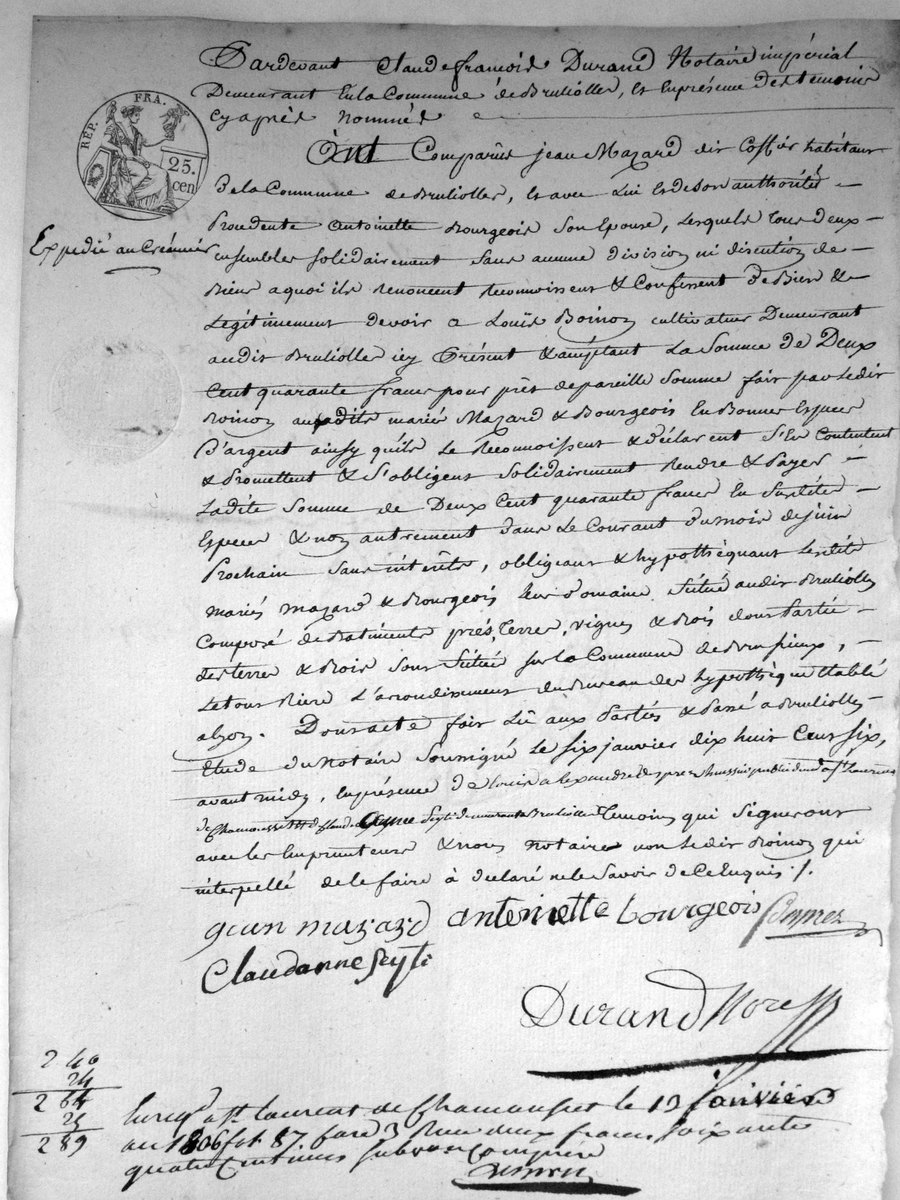 Pardevant Claude françois Durand Notaire impérial
Demeurant En la Commune de Brullolles, Et En présence des témoins
Cy après nommés
REP. FRA.
25.
cen
Ont Comparûs jean Mazard dit Coffier habitant
De la Commune de Brullolles, Et avec Lui Et de Son authorité
Procedente antoinette Bourgeois Son Epouse, Lesquels tous deux
Expedié au Créancier
ensembles solidairement Sans aucune division ni discution de
Biens a quoi ils Renoncent Reconnoissent & Confessent De Bien &
Légitimement Devoir a Louis Boinon cultivateur Demeurant
audit Brullolle icy Présent & acceptant La Somme de Deux
Cent quarante francs pour prêt de pareille Somme fait par Ledit
Boinon auxdits mariés Mazard & Bourgeois En Bonnes Especes
D'argent ainsy qu'ils Le Reconnoissent & déclarent S'En Contentent
& Promettent & S'obligent Solidairement Rendre & Payer
Ladite Somme de Deux Cent quarante francs En
Especes & non autrement Dans Le Courant du mois de juin
Prochain Sans intérêts, obligeant & hypothéquant Lesdits
mariés mazard & Bourgeois Leur Domaine Situé audit Brullolles
Composé de Batiments prés, Terres, vignes & Bois dont Partie
des terres & Bois Sont Situés sur La Commune de Brussieux,
Le tout Riere L'arrondissement du Bureau des hypothèque Etablé
alyon. Dont acte fait Lû aux Parties & Passé a Brullolles
Etude du Notaire Soussigné Le Six janvier dix huit Cent Six,
avant midy, En présence de Louis alexandre public dem.t a St Laurent
de Chamousset & Claude Seyti demeurant a Brullolles Temoins qui Signeront
avec Les Emprunteurs & nous notaire non Ledit Boinon qui
interpellé de le faire à déclaré ne le Savoir de Ce Enquis ./.
jean mazard antoinette bourgeois
Claudanne Seyti
Durand Nore
240
24
264
25
289
Enreg.é a St Laurent de Chamousset le 13 janvier
an 1806 f.t 87. Case 3 Reçu deux francs soixante
quatre Centimes Subvon Comprise